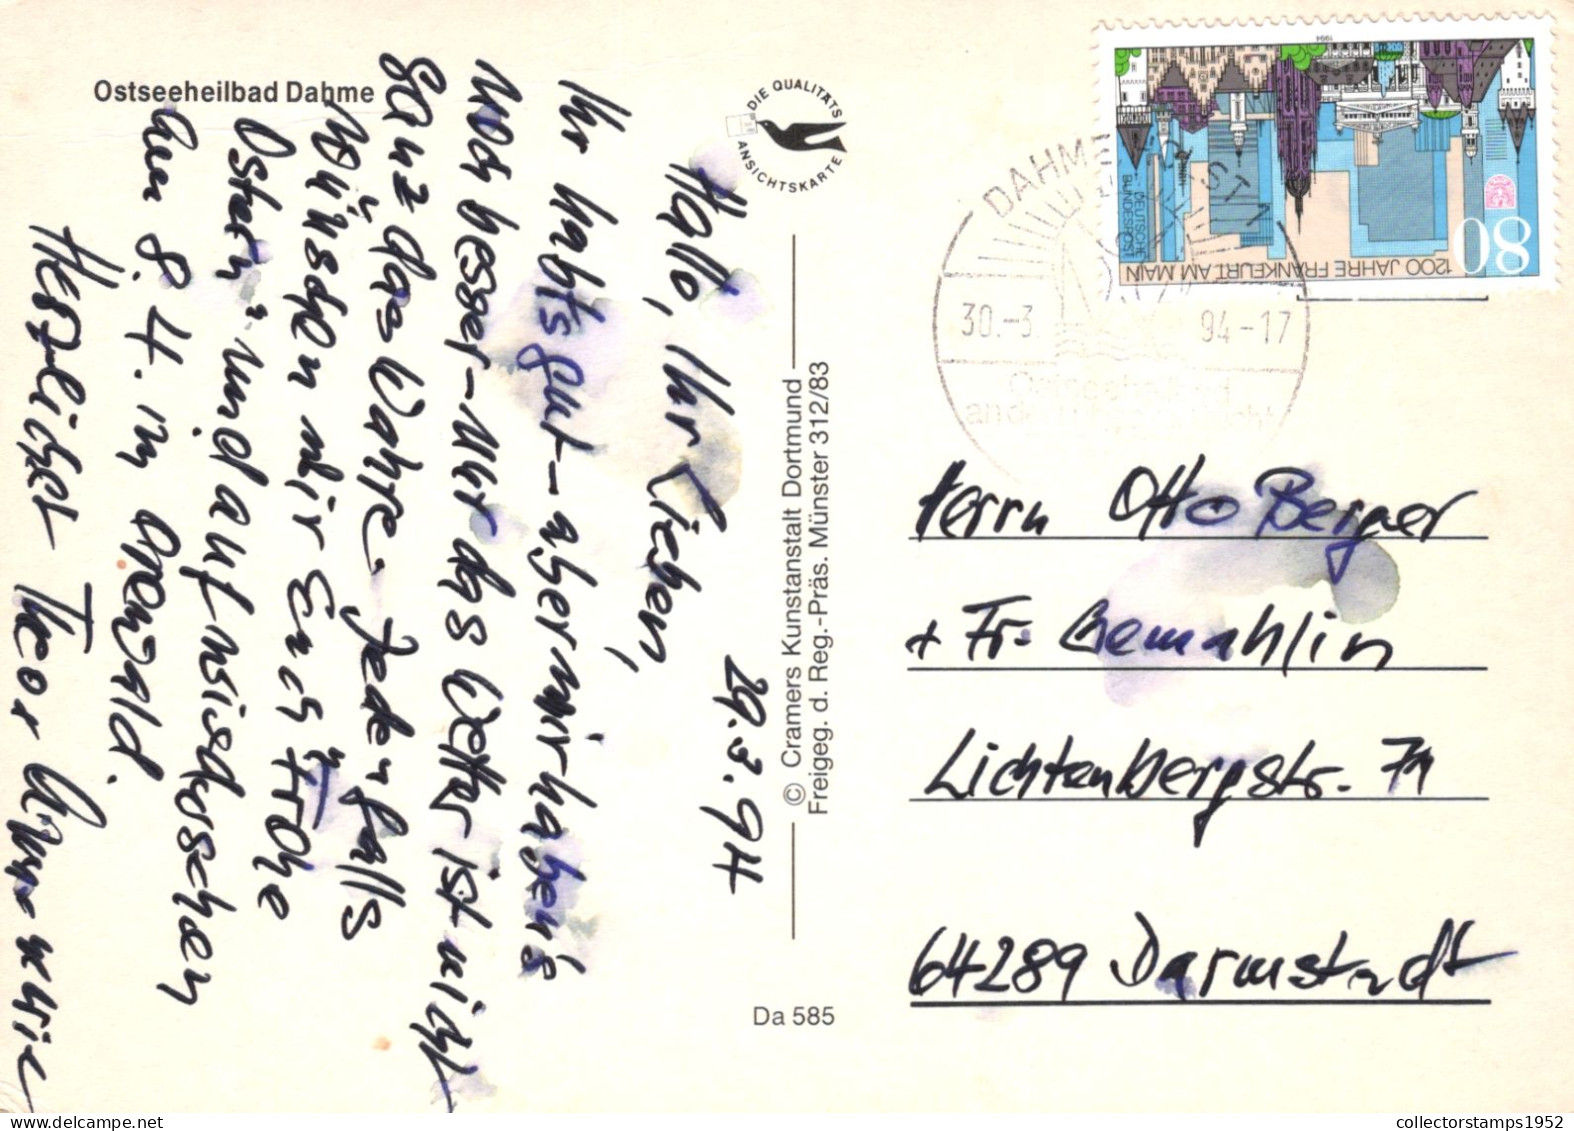 Ostseeheilbad Dahme
29.3.94
Hallo, Ihr Lieben,
Ihr habts gut - aber wir haben's
noch besser - nur das Wetter ist nicht
ganz das Wahre. Jedenfalls
wünschen wir Euch "Frohe
Ostern" und auf
am 8.4. im Odenwald.
Herzlichst Theo
DIE QUALITÄTS
ANSICHTSKARTE
© Cramers Kunstanstalt Dortmund
Freigeg. d. Reg.-Präs. Münster 312/83
Da 585
1994
DEUTSCHE
BUNDESPOST
80
1200 JAHRE FRANKFURT AM MAIN
DAHME
30.-3
94-17
Ostseeheilbad
Herrn Otto Berger
+ Fr. Gemahlin
Lichtenbergstr. 71
64289 Darmstadt
collectorstamps1952